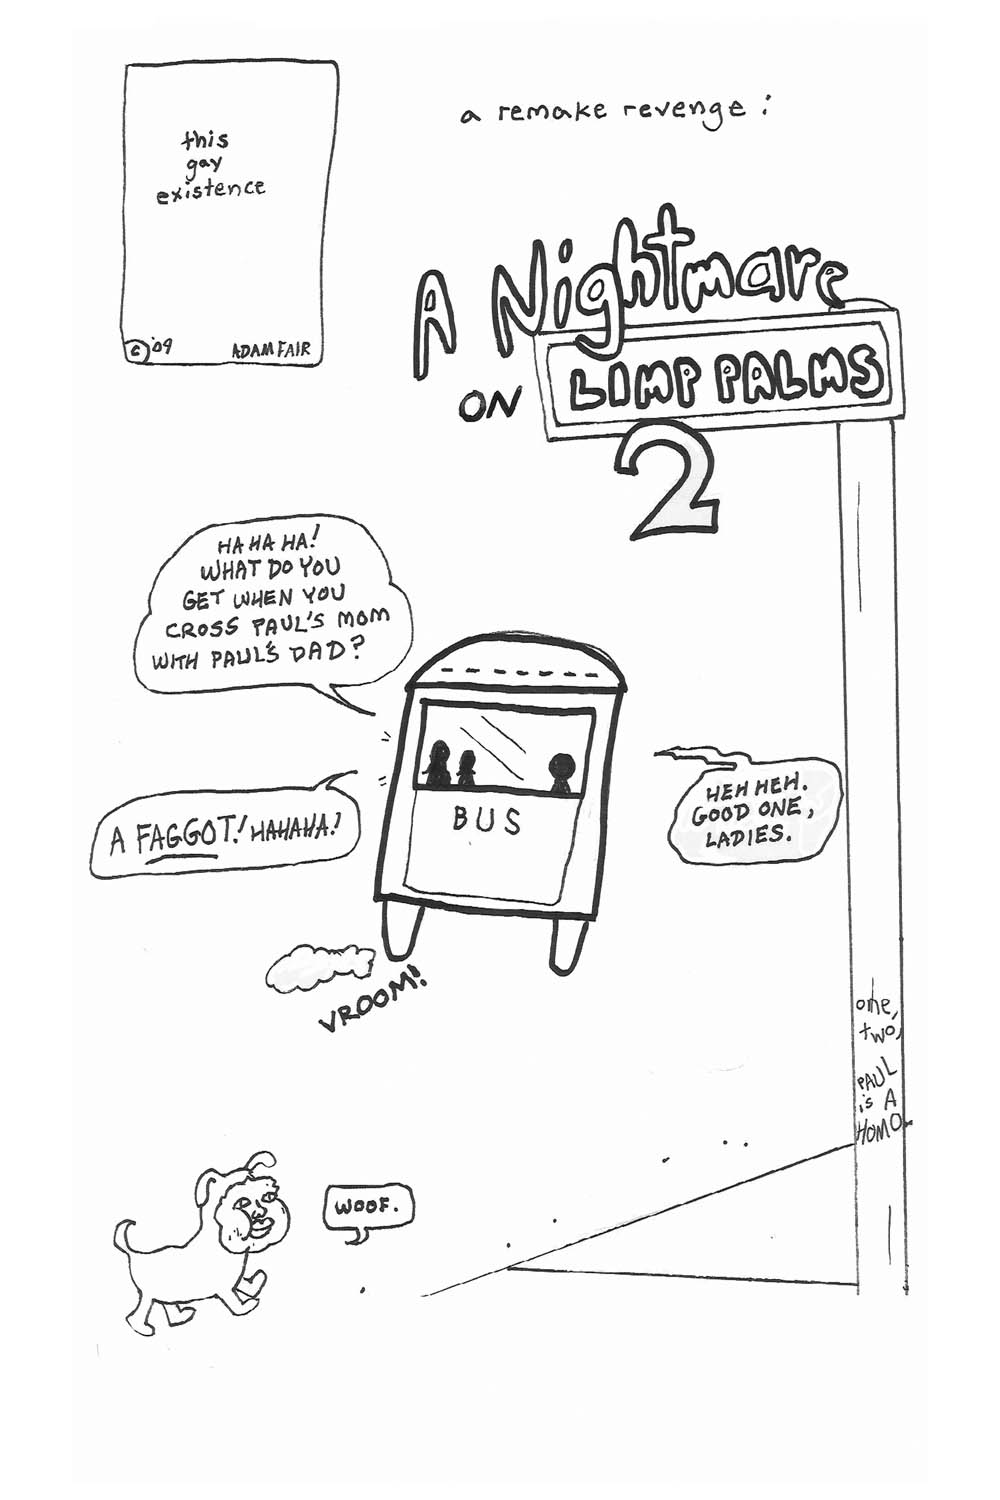 this
gay
existence
© '09 ADAM FAIR
a remake revenge:
A Nightmare
ON LIMP PALMS
2
HA HA HA!
WHAT DO YOU
GET WHEN YOU
CROSS PAUL'S MOM
WITH PAUL'S DAD?
A FAGGOT! HAHAHA!
HEH HEH.
GOOD ONE,
LADIES.
BUS
VROOM!
one,
two,
PAUL
is A
HOMO.
WOOF.